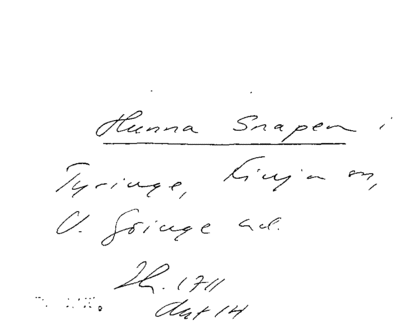 Hunna Snapen i
Tyringe, Finja sn,
V. Göinge hd.
Th. 1711
dat 14